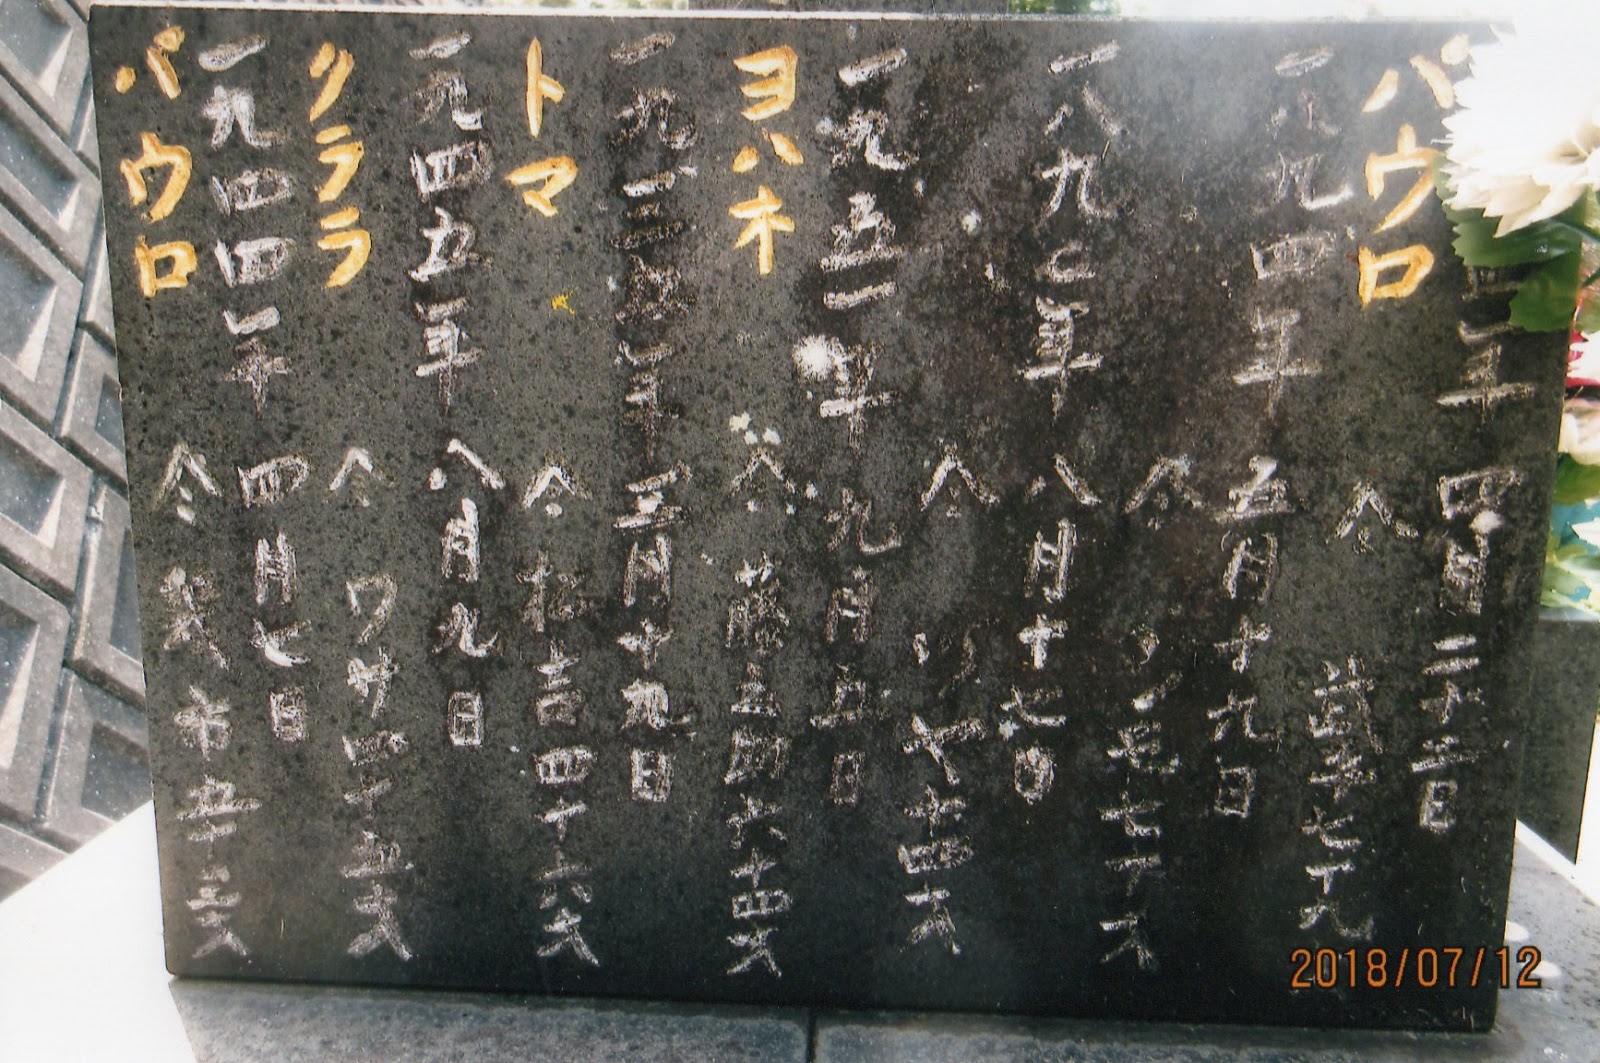 四年 四月二十三日
パウロ 仝 武平七十九
一八九四年 五月十九日
仝
一八九〇年 八月十七日
仝 ツヤ十四才
一九五一年 九月五日
ヨハネ 仝 藤三助六十四才
三月十九日
トマ 仝 松吉四十六才
一九四五年 八月九日
クララ 仝 ワサ四十五才
一九四四年 四月七日
パウロ 仝 市五十三才
2018/07/12